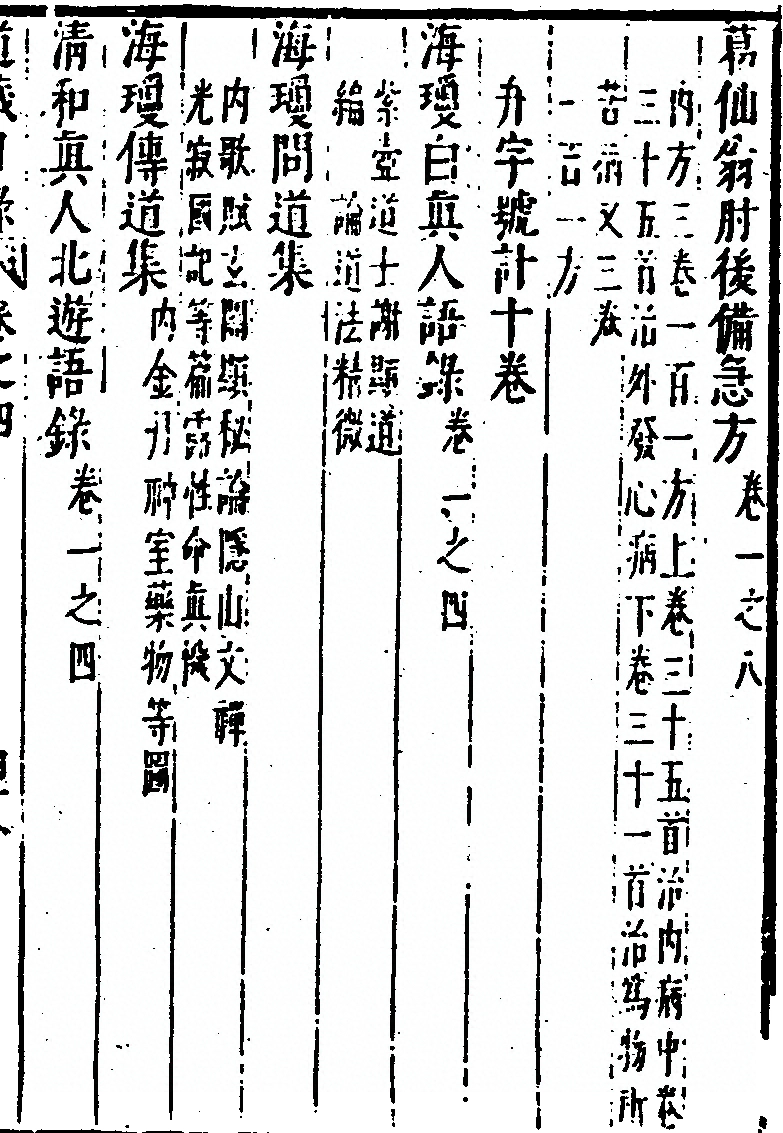 葛仙翁肘後備急方卷一之八
内方三卷一百一方上卷三十五首治内病中卷
三十五首治外發心病下卷三十一首治為物所
苦病又三卷
一百一方
弁字號計十卷
海瓊白真人語錄卷一之四
紫壺道士謝顯道
編 論道法精微
海瓊問道集
内歌賦玄關顯秘論隱山文禪
光寂圓記等篇露性命真機
海瓊傳道集内金丹神室藥物等圖
清和真人北遊語錄卷一之四
道藏目錄 卷之四